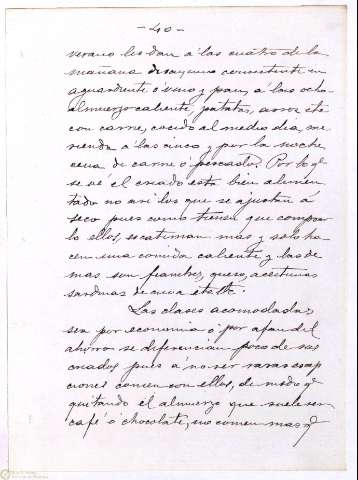 - 40 -
verano les dan á las cuatro de la
mañana desayuno consistente en
aguardiente ó vino y pan, á las ocho
almuerzo caliente, patatas, arroz etc
con carne, cocido al medio dia, me
rienda á las cinco y por la noche
cena de carne ó pescado. Por lo q͏e
se vé el criado está bien alimen
tado no asi los que se ajustan á
seco pues como tienen que comprar
lo ellos, escatiman mas y solo ha
cen una comida caliente y las de
mas son fiambres, queso, aceitunas
sardinas de cuva etc.
Las clases acomodadas
sea por economía ó por afan del
ahorro se diferencian poco de sus
criados pues á no ser raras escep
ciones comen con ellos, de modo q͏e
quitando el almuerzo que suele ser
café ó chocolate, no comen mas q͏e